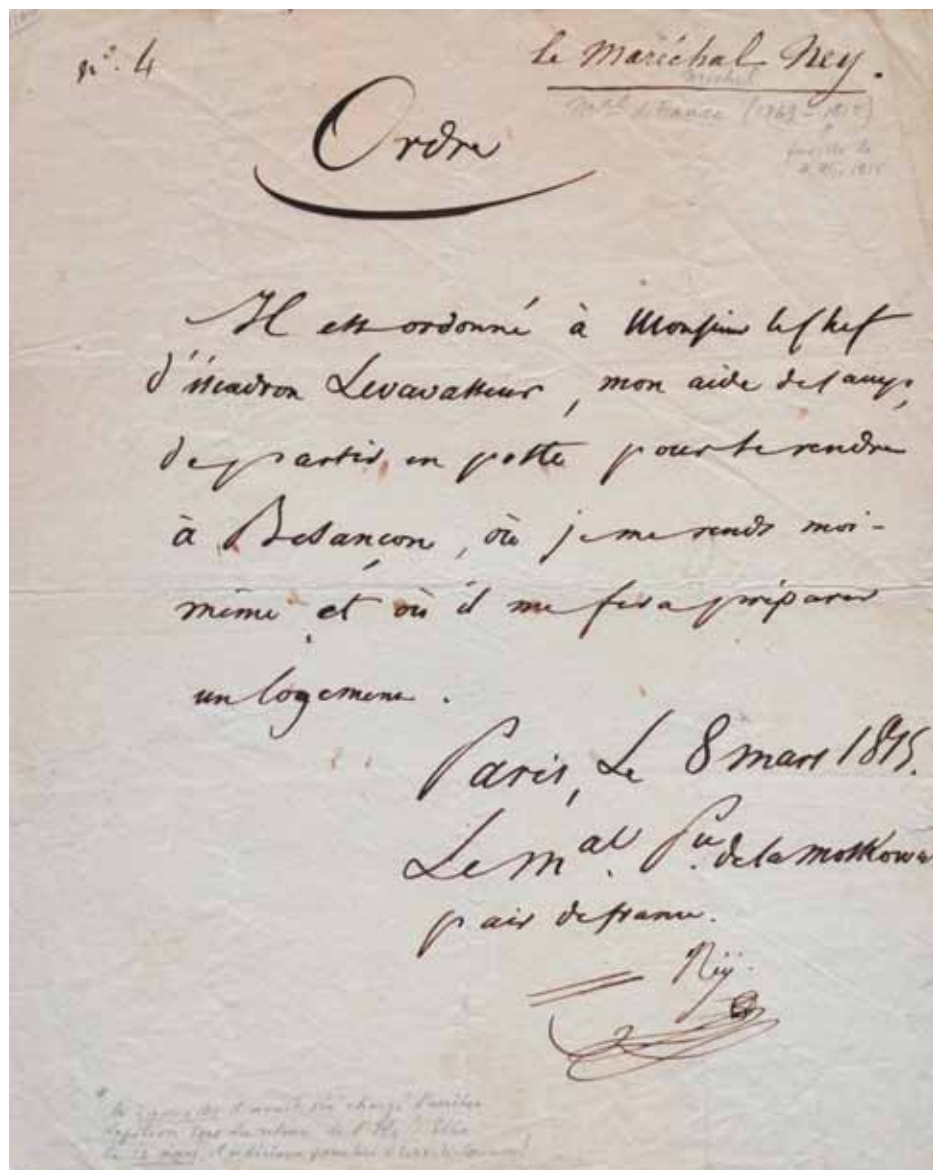 n°. 4
le Maréchal Ney.
Michel
Mal de France (1769 – 1815)
fusillé le
7. Xbre 1815
Ordre
Il est ordonné à Monsieur le Chef
d'éscadron Levavasseur, mon aide de camp,
de partir en poste pour se rendre
à Besançon, où je me rends moi-
même et où il me fera préparer
un logement.
Paris, Le 8 mars 1815.
Le Mal. Pce. de la Moskowa
pair de france.
Ney.
il avait été chargé d'arrêter
Napoléon lors du retour de l'Ile d'Elbe